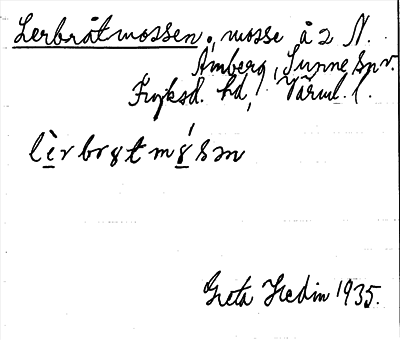 Lerbråtmossen, mosse å 2 N.
Åmberg, Sunne sn v.
Fryksd. hd, Värml. l.
lèrbrɷtmɷ́sən
Greta Hedin 1935.